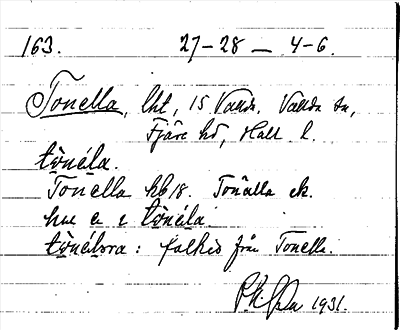 163. 27-28 — 4-6.
Tonella, lht, 15 Valda. Valda sn,
Fjäre hd, Hall l.
tònéla.
Tonella hb 18. Tonälla ek.
hue e i tònéla
tònélsra: folket från Tonella.
1931.